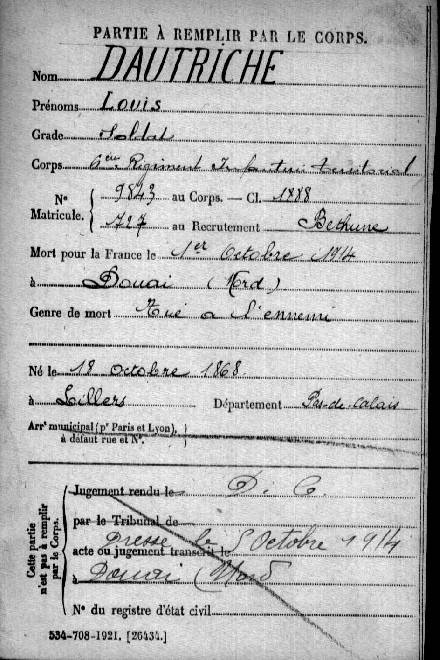 PARTIE À REMPLIR PAR LE CORPS.
Nom DAUTRICHE
Prénoms Louis
Grade Soldat
Corps 6eme Régiment Infanterie territorial
Nº Matricule. { 9843 au Corps. — Cl. 1888
727 au Recrutement Bethune
Mort pour la France le 1er Octobre 1914
à Douai (Nord)
Genre de mort Tué a l'ennemi
Né le 18 octobre 1868
à Lillers Département Pas-de-Calais
Arrt municipal (pr Paris et Lyon), à défaut rue et Nº. }
Cette partie n'est pas à remplir par le Corps. {
Jugement rendu le D. C.
par le Tribunal de
Dressé le 5 Octobre 1914
acte ou jugement transcrit le
à Douai (Nord
Nº du registre d'état civil
534-708-1921. [26434.]